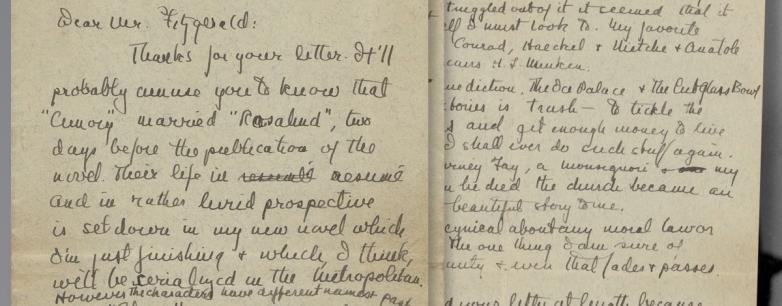 Dear Mr. Fitzgerald:
Thanks for your letter. It'll
probably amuse you to know that
"Amory" married "Rosalind", two
days before the publication of the
novel. Their life in resumé
and in rather lurid prospective
is set down in my new novel which
I'm just finishing & which, I think,
will be serialized in the Metropolitan.
However the characters have different names & past
struggled out of it it seemed that it
all I must look to. My favorite
Conrad, Haeckel & Nietche & Anatole
H. L. Menken.
The Ice Palace & The Cut Glass Bowl
stories is trash — To tickle the
and get enough money to live
I shall ever do such stuff again.
Fay, a monsignori my
he died the church became an
beautiful story to me.
cynical about any moral law or
The one thing I am sure of
& even that fades & passes.
your letter at length because